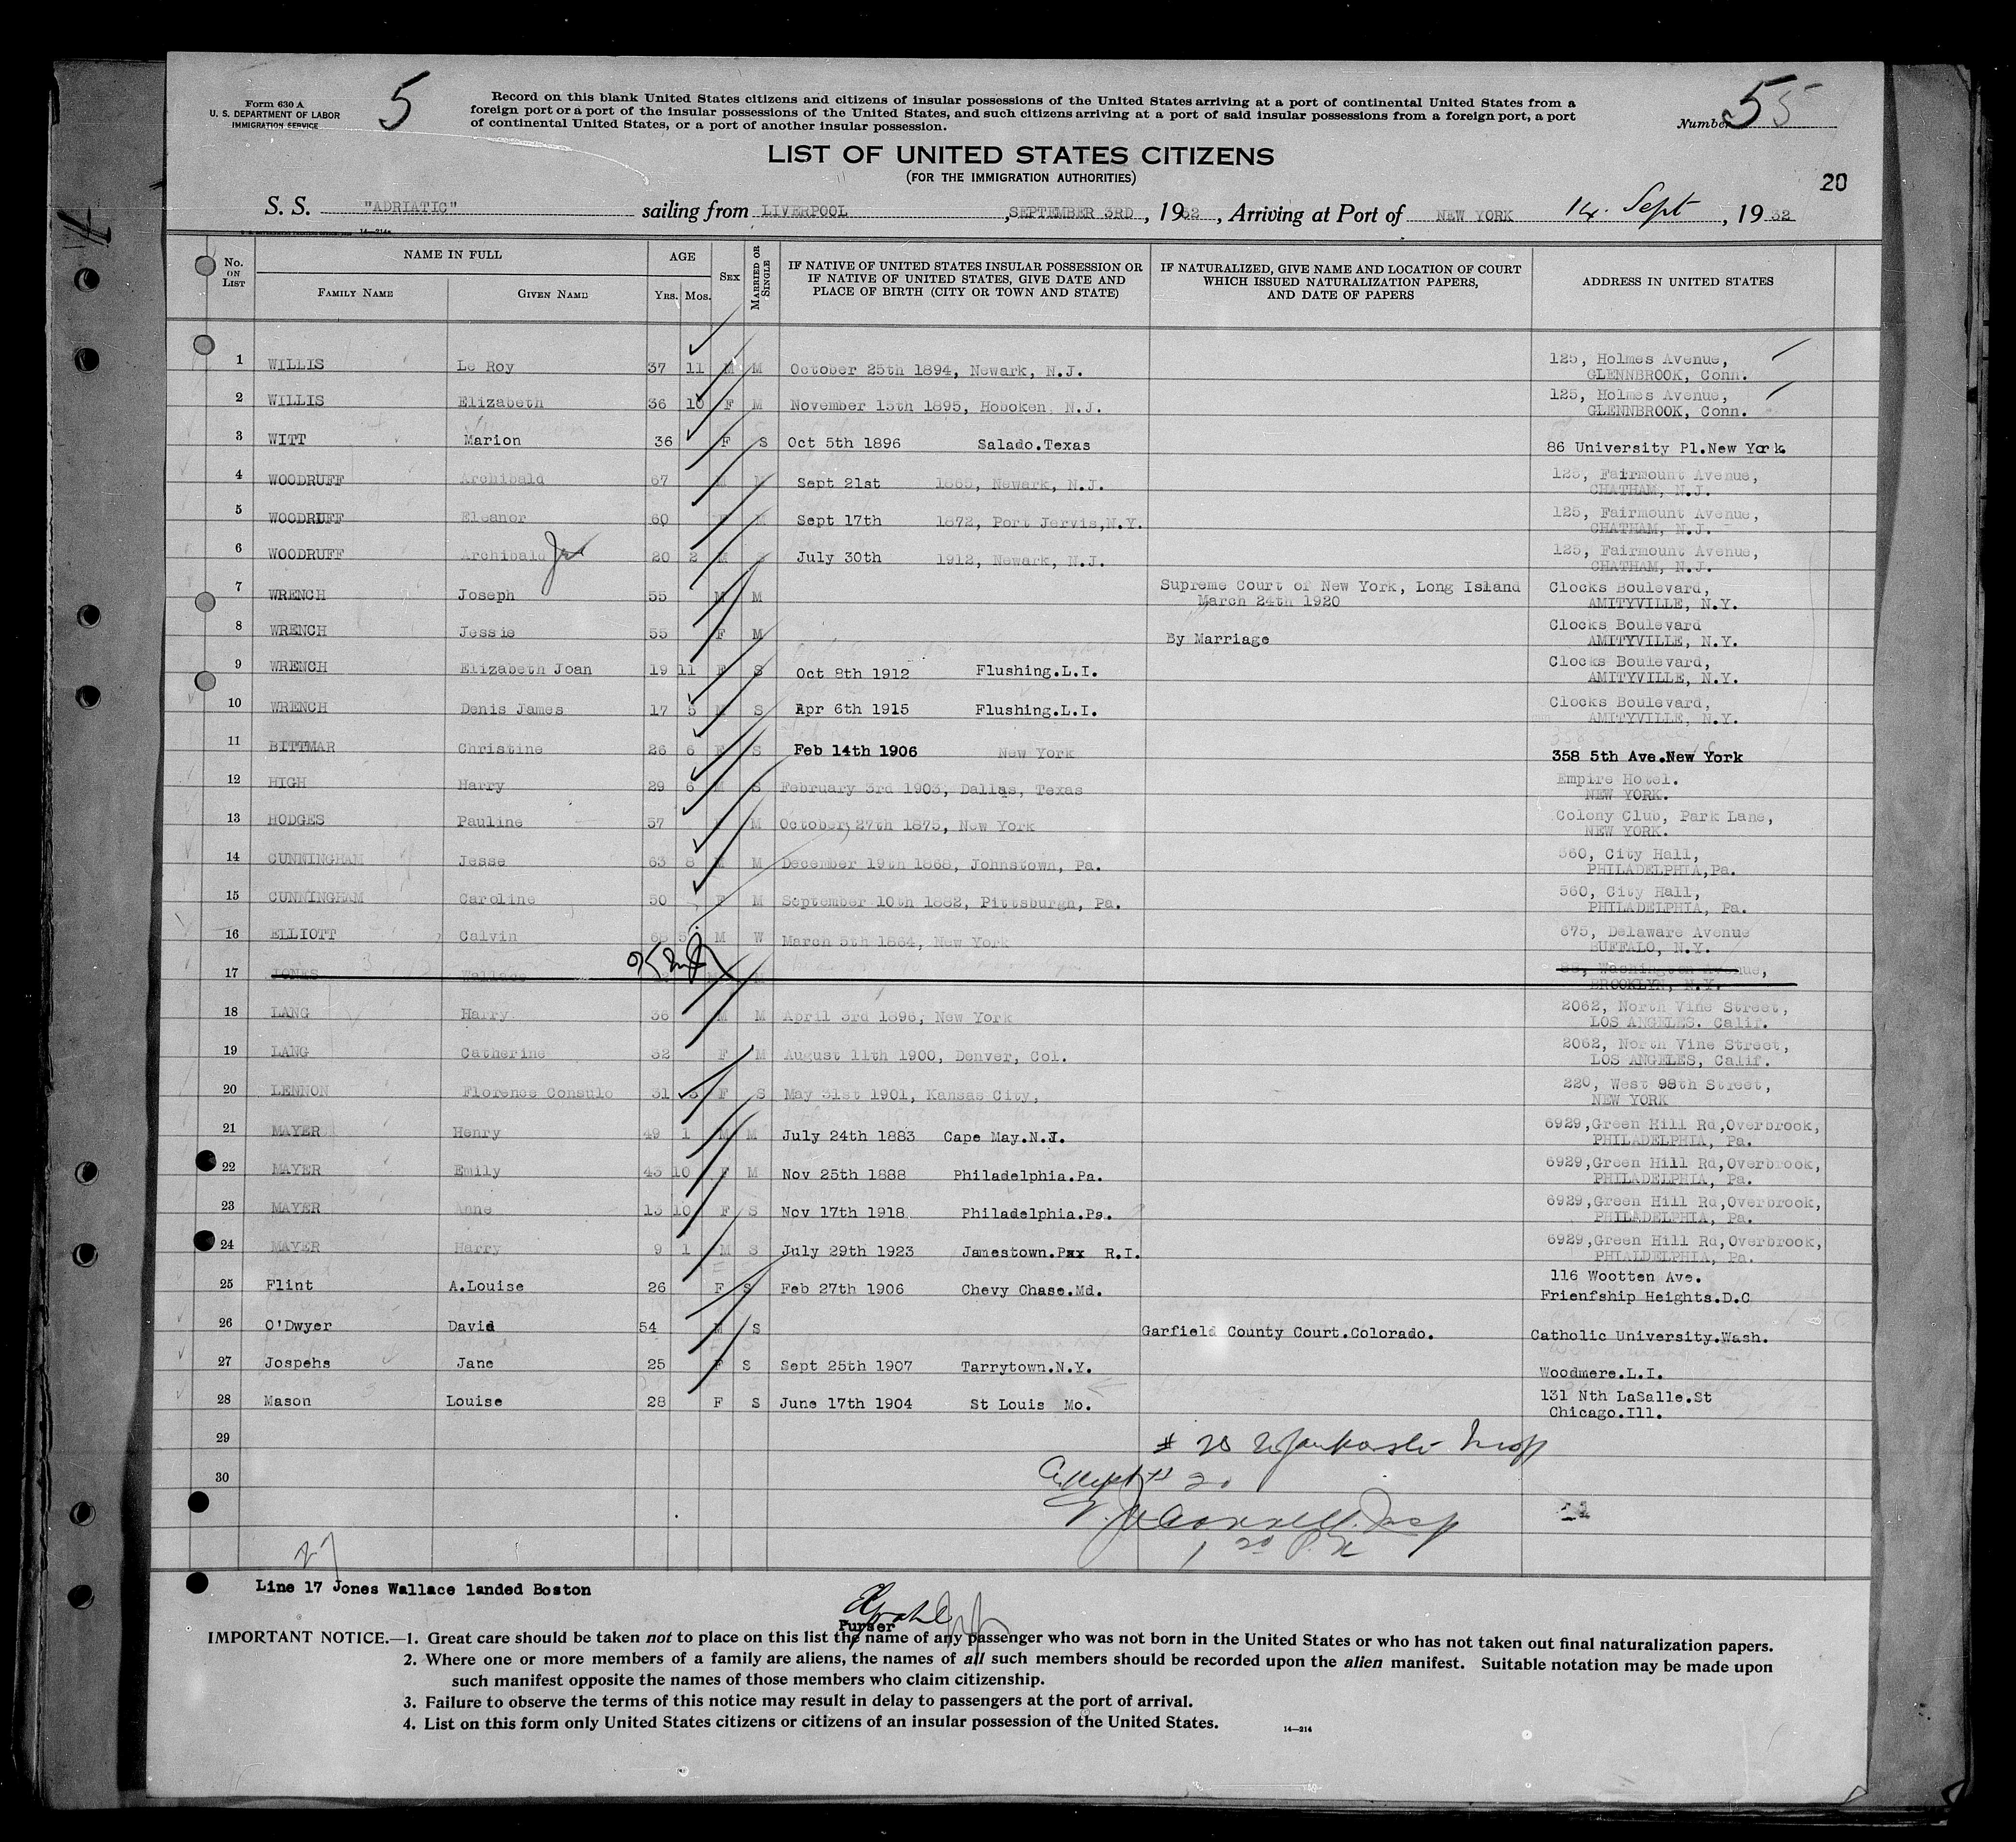 Form 630 A
U. S. DEPARTMENT OF LABOR
IMMIGRATION SERVICE
5
Record on this blank United States citizens and citizens of insular possessions of the United States arriving at a port of continental United States from a
foreign port or a port of the insular possessions of the United States, and such citizens arriving at a port of said insular possessions from a foreign port, a port
of continental United States, or a port of another insular possession.
Number 55
LIST OF UNITED STATES CITIZENS
(FOR THE IMMIGRATION AUTHORITIES)
20
S. S. "ADRIATIC" sailing from LIVERPOOL, SEPTEMBER 3RD, 1932, Arriving at Port of NEW YORK 14. Sept, 1932
No. ON LIST NAME IN FULL FAMILY NAME GIVEN NAME AGE YRS. MOS. SEX MARRIED OR SINGLE
IF NATIVE OF UNITED STATES INSULAR POSSESSION OR
IF NATIVE OF UNITED STATES, GIVE DATE AND
PLACE OF BIRTH (CITY OR TOWN AND STATE)
IF NATURALIZED, GIVE NAME AND LOCATION OF COURT
WHICH ISSUED NATURALIZATION PAPERS,
AND DATE OF PAPERS
ADDRESS IN UNITED STATES
1 WILLIS Le Roy 37 11 M M October 25th 1894, Newark, N.J. 125, Holmes Avenue,
GLENNBROOK, Conn.
2 WILLIS Elizabeth 36 10 F M November 15th 1895, Hoboken, N.J. 125, Holmes Avenue,
GLENNBROOK, Conn.
3 WITT Marion 36 F S Oct 5th 1896 Salado.Texas 86 University Pl.New York
4 WOODRUFF Archibald 67 M M Sept 21st 1865, Newark, N.J. 125, Fairmount Avenue,
CHATHAM, N.J.
5 WOODRUFF Eleanor 60 F M Sept 17th 1872, Port Jervis,N.Y. 125, Fairmount Avenue,
CHATHAM, N.J.
6 WOODRUFF Archibald Jr 20 2 M S July 30th 1912, Newark, N.J. 125, Fairmount Avenue,
CHATHAM, N.J.
7 WRENCH Joseph 55 M M Supreme Court of New York, Long Island
March 24th 1920 Clocks Boulevard,
AMITYVILLE, N.Y.
8 WRENCH Jessie 55 F M By Marriage Clocks Boulevard
AMITYVILLE, N.Y.
9 WRENCH Elizabeth Joan 19 11 F S Oct 8th 1912 Flushing.L.I. Clocks Boulevard,
AMITYVILLE, N.Y.
10 WRENCH Denis James 17 5 M S Apr 6th 1915 Flushing.L.I. Clocks Boulevard,
AMITYVILLE, N.Y.
11 BITTMAR Christine 26 6 F S Feb 14th 1906 New York 358 5th Ave.New York
12 HIGH Harry 29 6 M S February 3rd 1903, Dallas, Texas Empire Hotel.
NEW YORK.
13 HODGES Pauline 57 F M October 27th 1875, New York Colony Club, Park Lane,
NEW YORK.
14 CUNNINGHAM Jesse 63 8 M M December 19th 1868, Johnstown, Pa. 560, City Hall,
PHILADELPHIA,Pa.
15 CUNNINGHAM Caroline 50 F M September 10th 1882, Pittsburgh, Pa. 560, City Hall,
PHILADELPHIA, Pa.
16 ELLIOTT Calvin 68 5 M W March 5th 1864, New York 675, Delaware Avenue
BUFFALO, N.Y.
17 JONES Wallace M Washington Avenue,
BROOKLYN, N.Y.
18 LANG Harry 36 M M April 3rd 1896, New York 2062, North Vine Street,
LOS ANGELES. Calif.
19 LANG Catherine 32 F M August 11th 1900, Denver, Col. 2062, North Vine Street,
LOS ANGELES, Calif.
20 LENNON Florence Consulo 31 3 F S May 31st 1901, Kansas City, 220, West 98th Street,
NEW YORK
21 MAYER Henry 49 1 M M July 24th 1883 Cape May.N.J. 6929,Green Hill Rd,Overbrook,
PHILADELPHIA, Pa.
22 MAYER Emily 43 10 F M Nov 25th 1888 Philadelphia.Pa. 6929,Green Hill Rd,Overbrook,
PHILADELPHIA, Pa.
23 MAYER Anne 13 10 F S Nov 17th 1918 Philadelphia.Pa. 6929,Green Hill Rd,Overbrook,
PHILADELPHIA, Pa.
24 MAYER Harry 9 1 M S July 29th 1923 Jamestown.Pxx R.I. 6929,Green Hill Rd,Overbrook,
PHIALDELPHIA, Pa.
25 Flint A.Louise 26 F S Feb 27th 1906 Chevy Chase.Md. 116 Wootten Ave.
Frienfship Heights.D.C
26 O'Dwyer David 54 M S Garfield County Court.Colorado. Catholic University.Wash.
27 Jospehs Jane 25 F S Sept 25th 1907 Tarrytown.N.Y. Woodmere.L.I.
28 Mason Louise 28 F S June 17th 1904 St Louis Mo. 131 Nth LaSalle.St
Chicago.Ill.
29
30
27
Line 17 Jones Wallace landed Boston
Purser
IMPORTANT NOTICE.—1. Great care should be taken not to place on this list the name of any passenger who was not born in the United States or who has not taken out final naturalization papers.
2. Where one or more members of a family are aliens, the names of all such members should be recorded upon the alien manifest. Suitable notation may be made upon
such manifest opposite the names of those members who claim citizenship.
3. Failure to observe the terms of this notice may result in delay to passengers at the port of arrival.
4. List on this form only United States citizens or citizens of an insular possession of the United States.
14—214